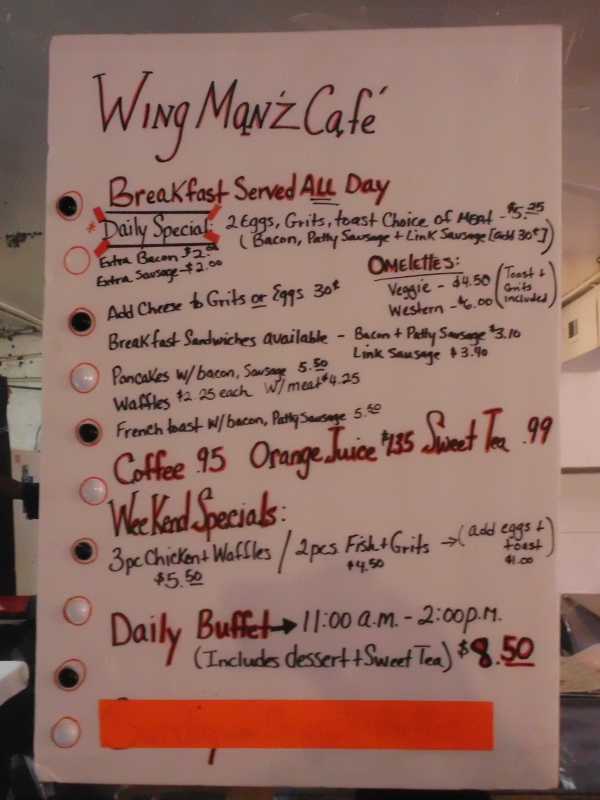 Wing Manz Café
Breakfast Served ALL Day
* Daily Special: 2 Eggs, Grits, toast Choice of MEAT - $5.25
(Bacon, Patty Sausage + Link Sausage [add 30¢])
Extra Bacon $2.00
Extra Sausage - $2.00
OMELETTES:
Veggie - $4.50 (Toast + Grits included)
Western - $6.00
Add Cheese to Grits or Eggs 30¢
Breakfast Sandwiches available - Bacon + Patty Sausage $3.10
Link Sausage $3.40
Pancakes w/bacon, Sausage 5.50
Waffles $2.25 each w/meat $4.25
French toast w/bacon, Patty Sausage 5.50
Coffee .95 Orange Juice $1.35 Sweet Tea .99
Weekend Specials:
3pc Chicken + Waffles / 2pcs Fish + Grits → (add eggs + toast $1.00)
$5.50 $4.50
Daily Buffet → 11:00 a.m. - 2:00 p.m.
(Includes dessert + Sweet Tea) $8.50